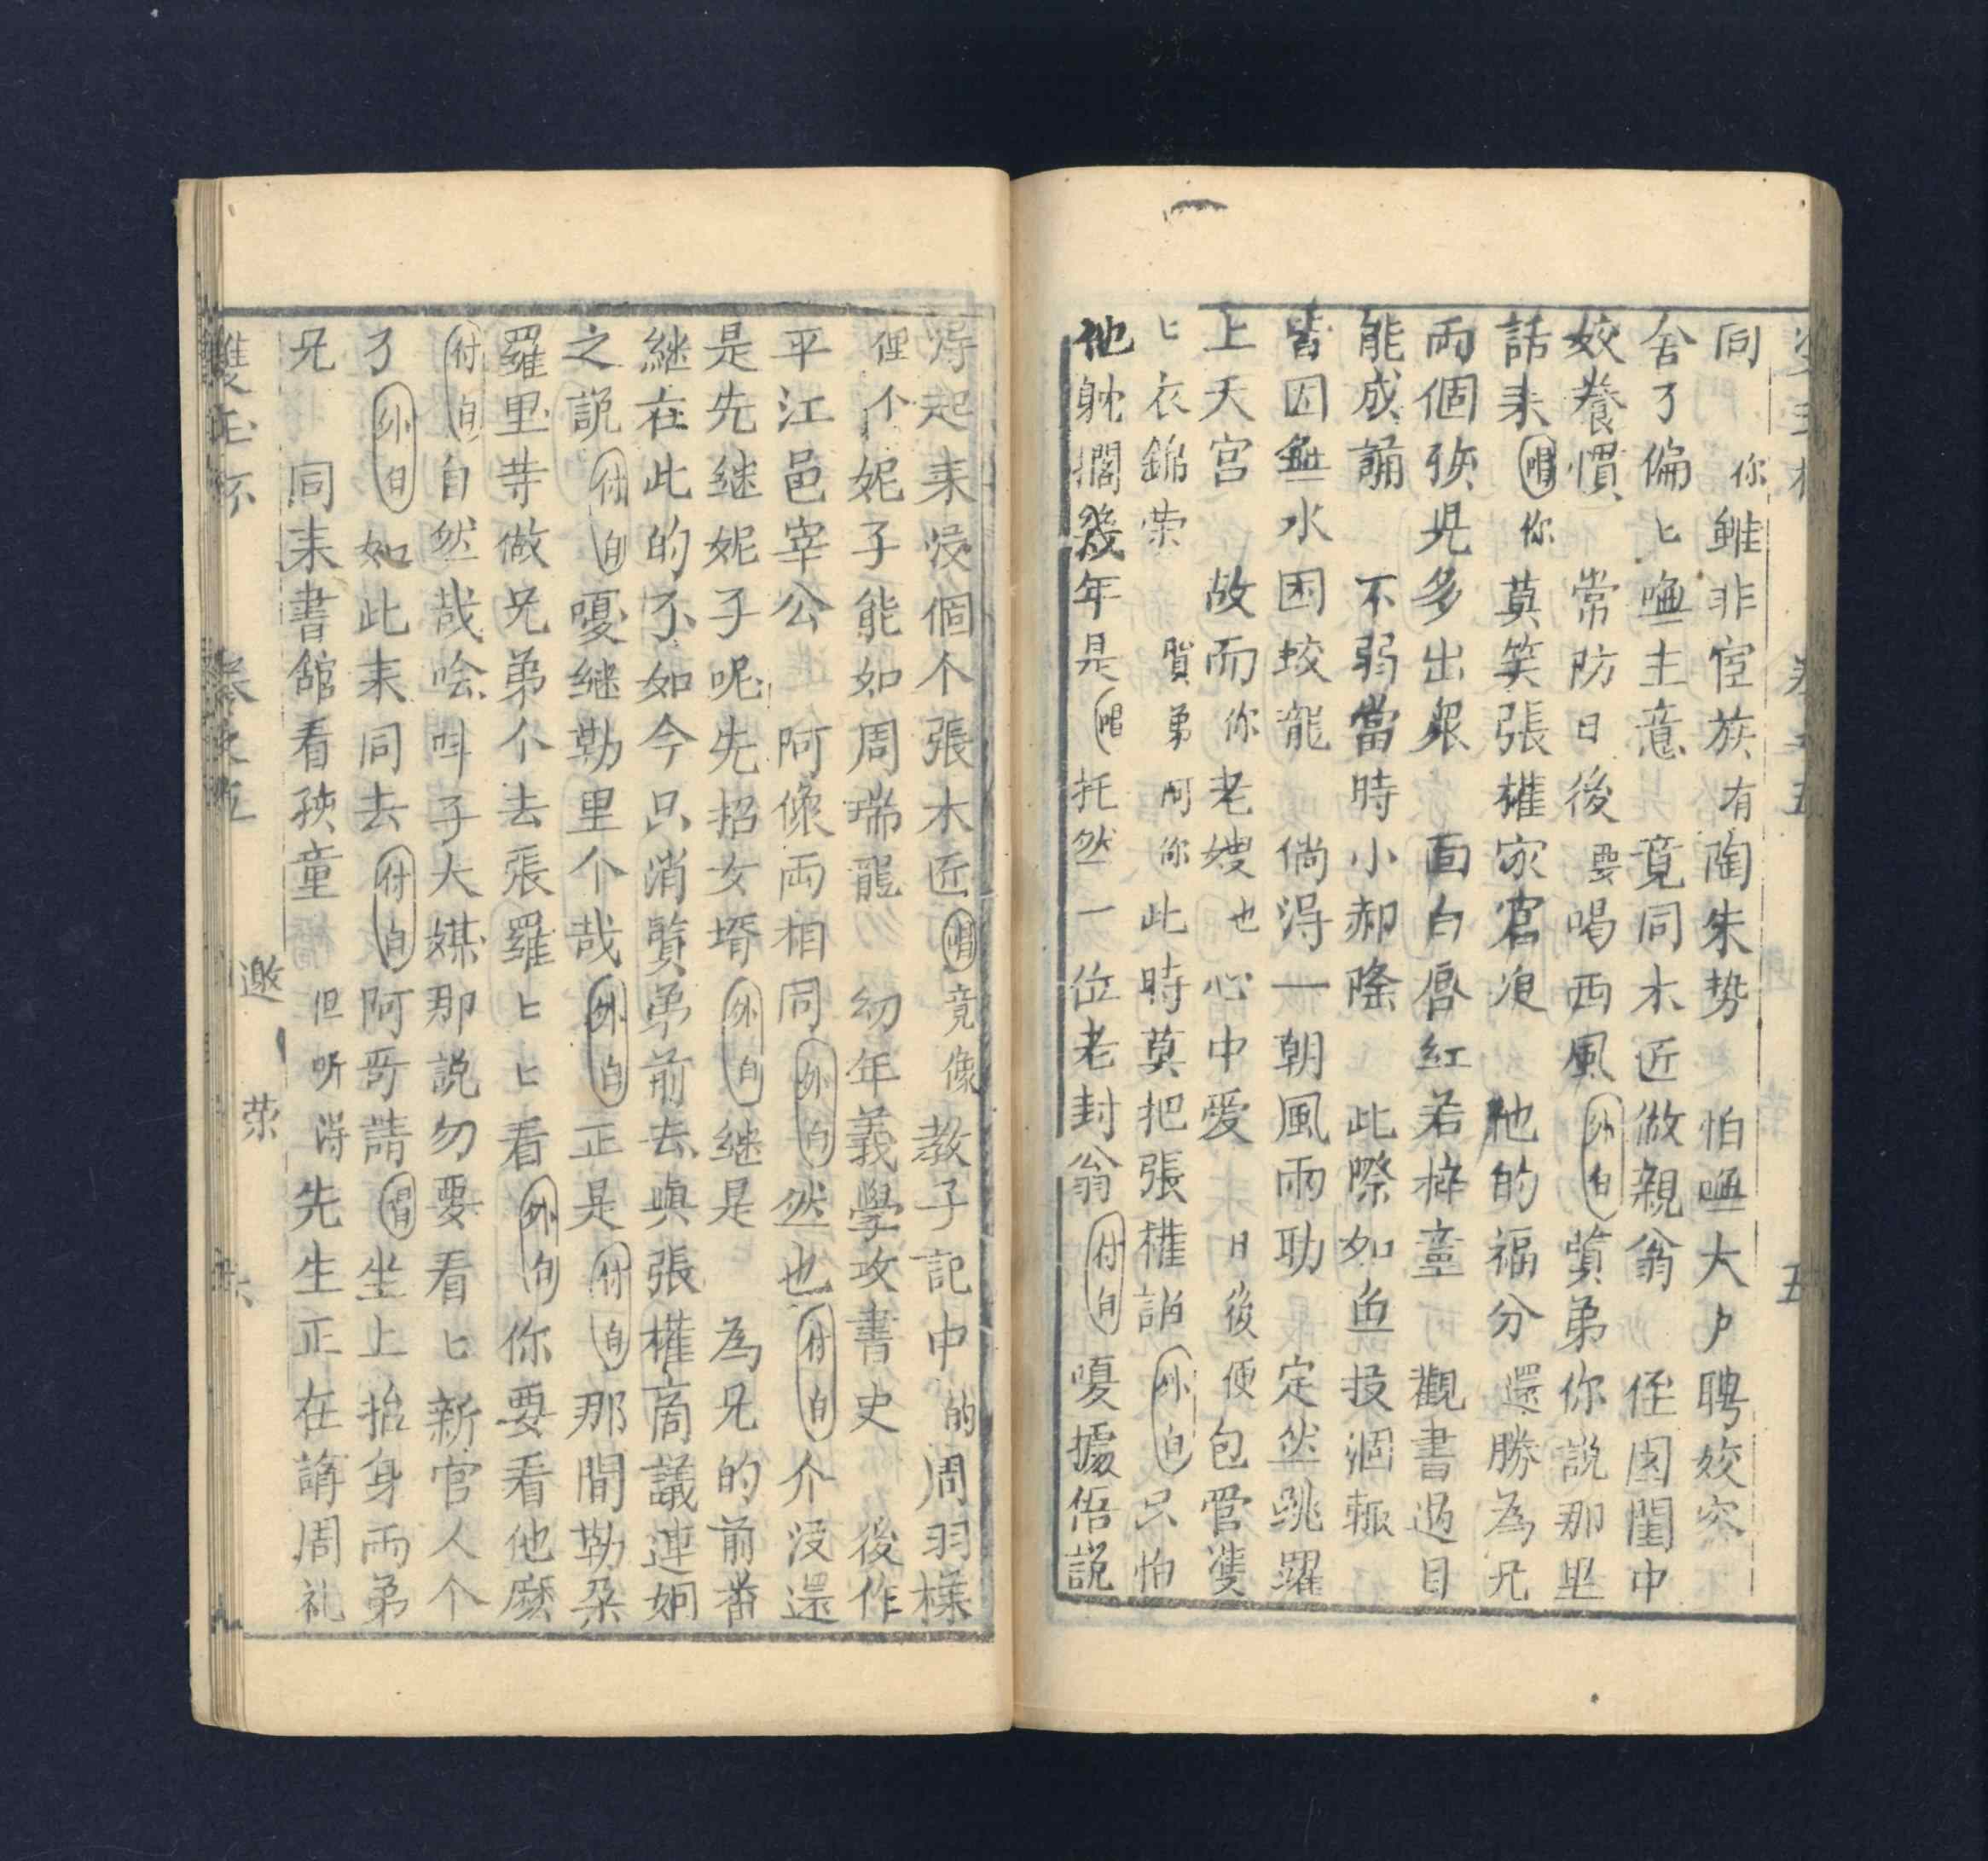 同 你雖非宦族有陶朱势 怕無大户聘姣容
舍了偏匕無主意 竟同木匠做親翁 侄囡閨中
姣養慣 常防日後要喝西風 外白 賢弟你説那里
話耒 唱 你莫笑張權家窘迫 他的福分還勝為兄
兩個孩兒多出衆 面白唇紅若梓童 觀書過目
能成誦 不弱當時小郝隆 此際如魚投涸轍
皆因無水困蛟龍 倘淂一朝風雨助 定然跳躍
上天宫 故而你老嫂也心中愛 日後便包管雙
匕衣錦荣 賢弟阿你此時莫把張權誚 外白 只怕
他躭擱幾年是 唱 托然一位老封翁 付白 嗄據伍説
淂起耒没個个張木匠 唱 竟像教子記中的周羽樣
俚个妮子能如周瑞龍 幼年義學攻書史 後作
平江邑宰公 阿像兩相同 外白 然也 付白 介没還
是先継妮子呢先招女壻 外白 継是 為兄的前番
継在此的了如今只消賢弟前去與張權商議連姻
之說 付白 嗄継勒里个哉 外白 正是 付白 那間勒朶
羅里寺做兄弟个去張羅匕匕看 外白 你要看他麼
付白 自然哉唅呌子大媒那説勿要看匕新官人个
了 外白 如此耒同去 付白 阿哥請 唱 坐上抬身兩弟
兄 同耒書舘看孩童 但听淂先生正在講周礼
雙玉杯 卷之五 邀荣 六